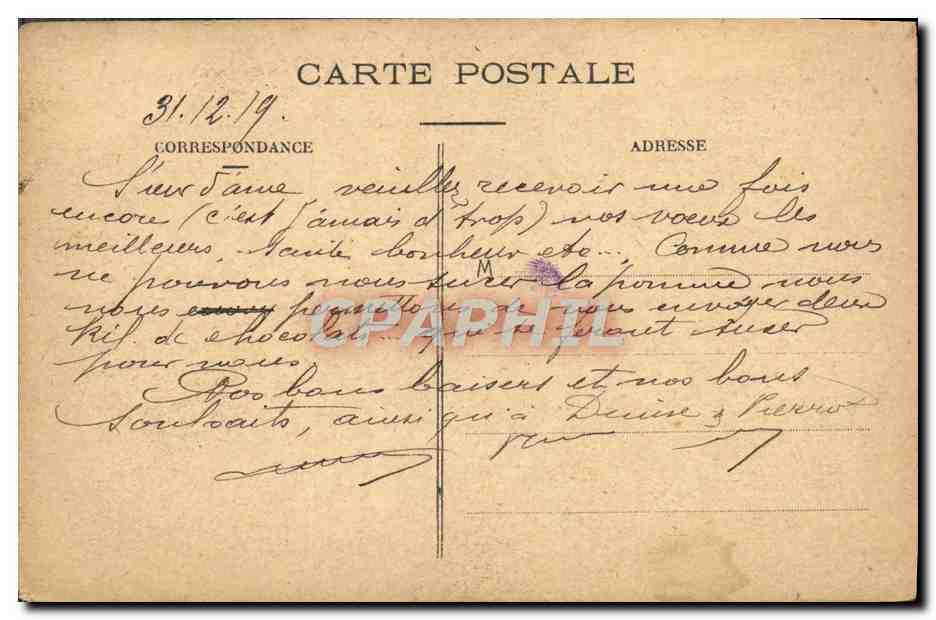 CARTE POSTALE
31.12.19.
CORRESPONDANCE
ADRESSE
veuillez recevoir une fois
encore (c'est jamais d trop) nos vœux les
meilleurs, santé bonheur etc... Comme nous
M
ne pouvons nous sucer la pomme nous
nous permettons nous envoyer deux
kil. de chocolat que se feront sucer
pour nous.
Nos bons baisers et nos bons
souhaits, ainsi qu'à Denise & Pierrot
CPAPHIL